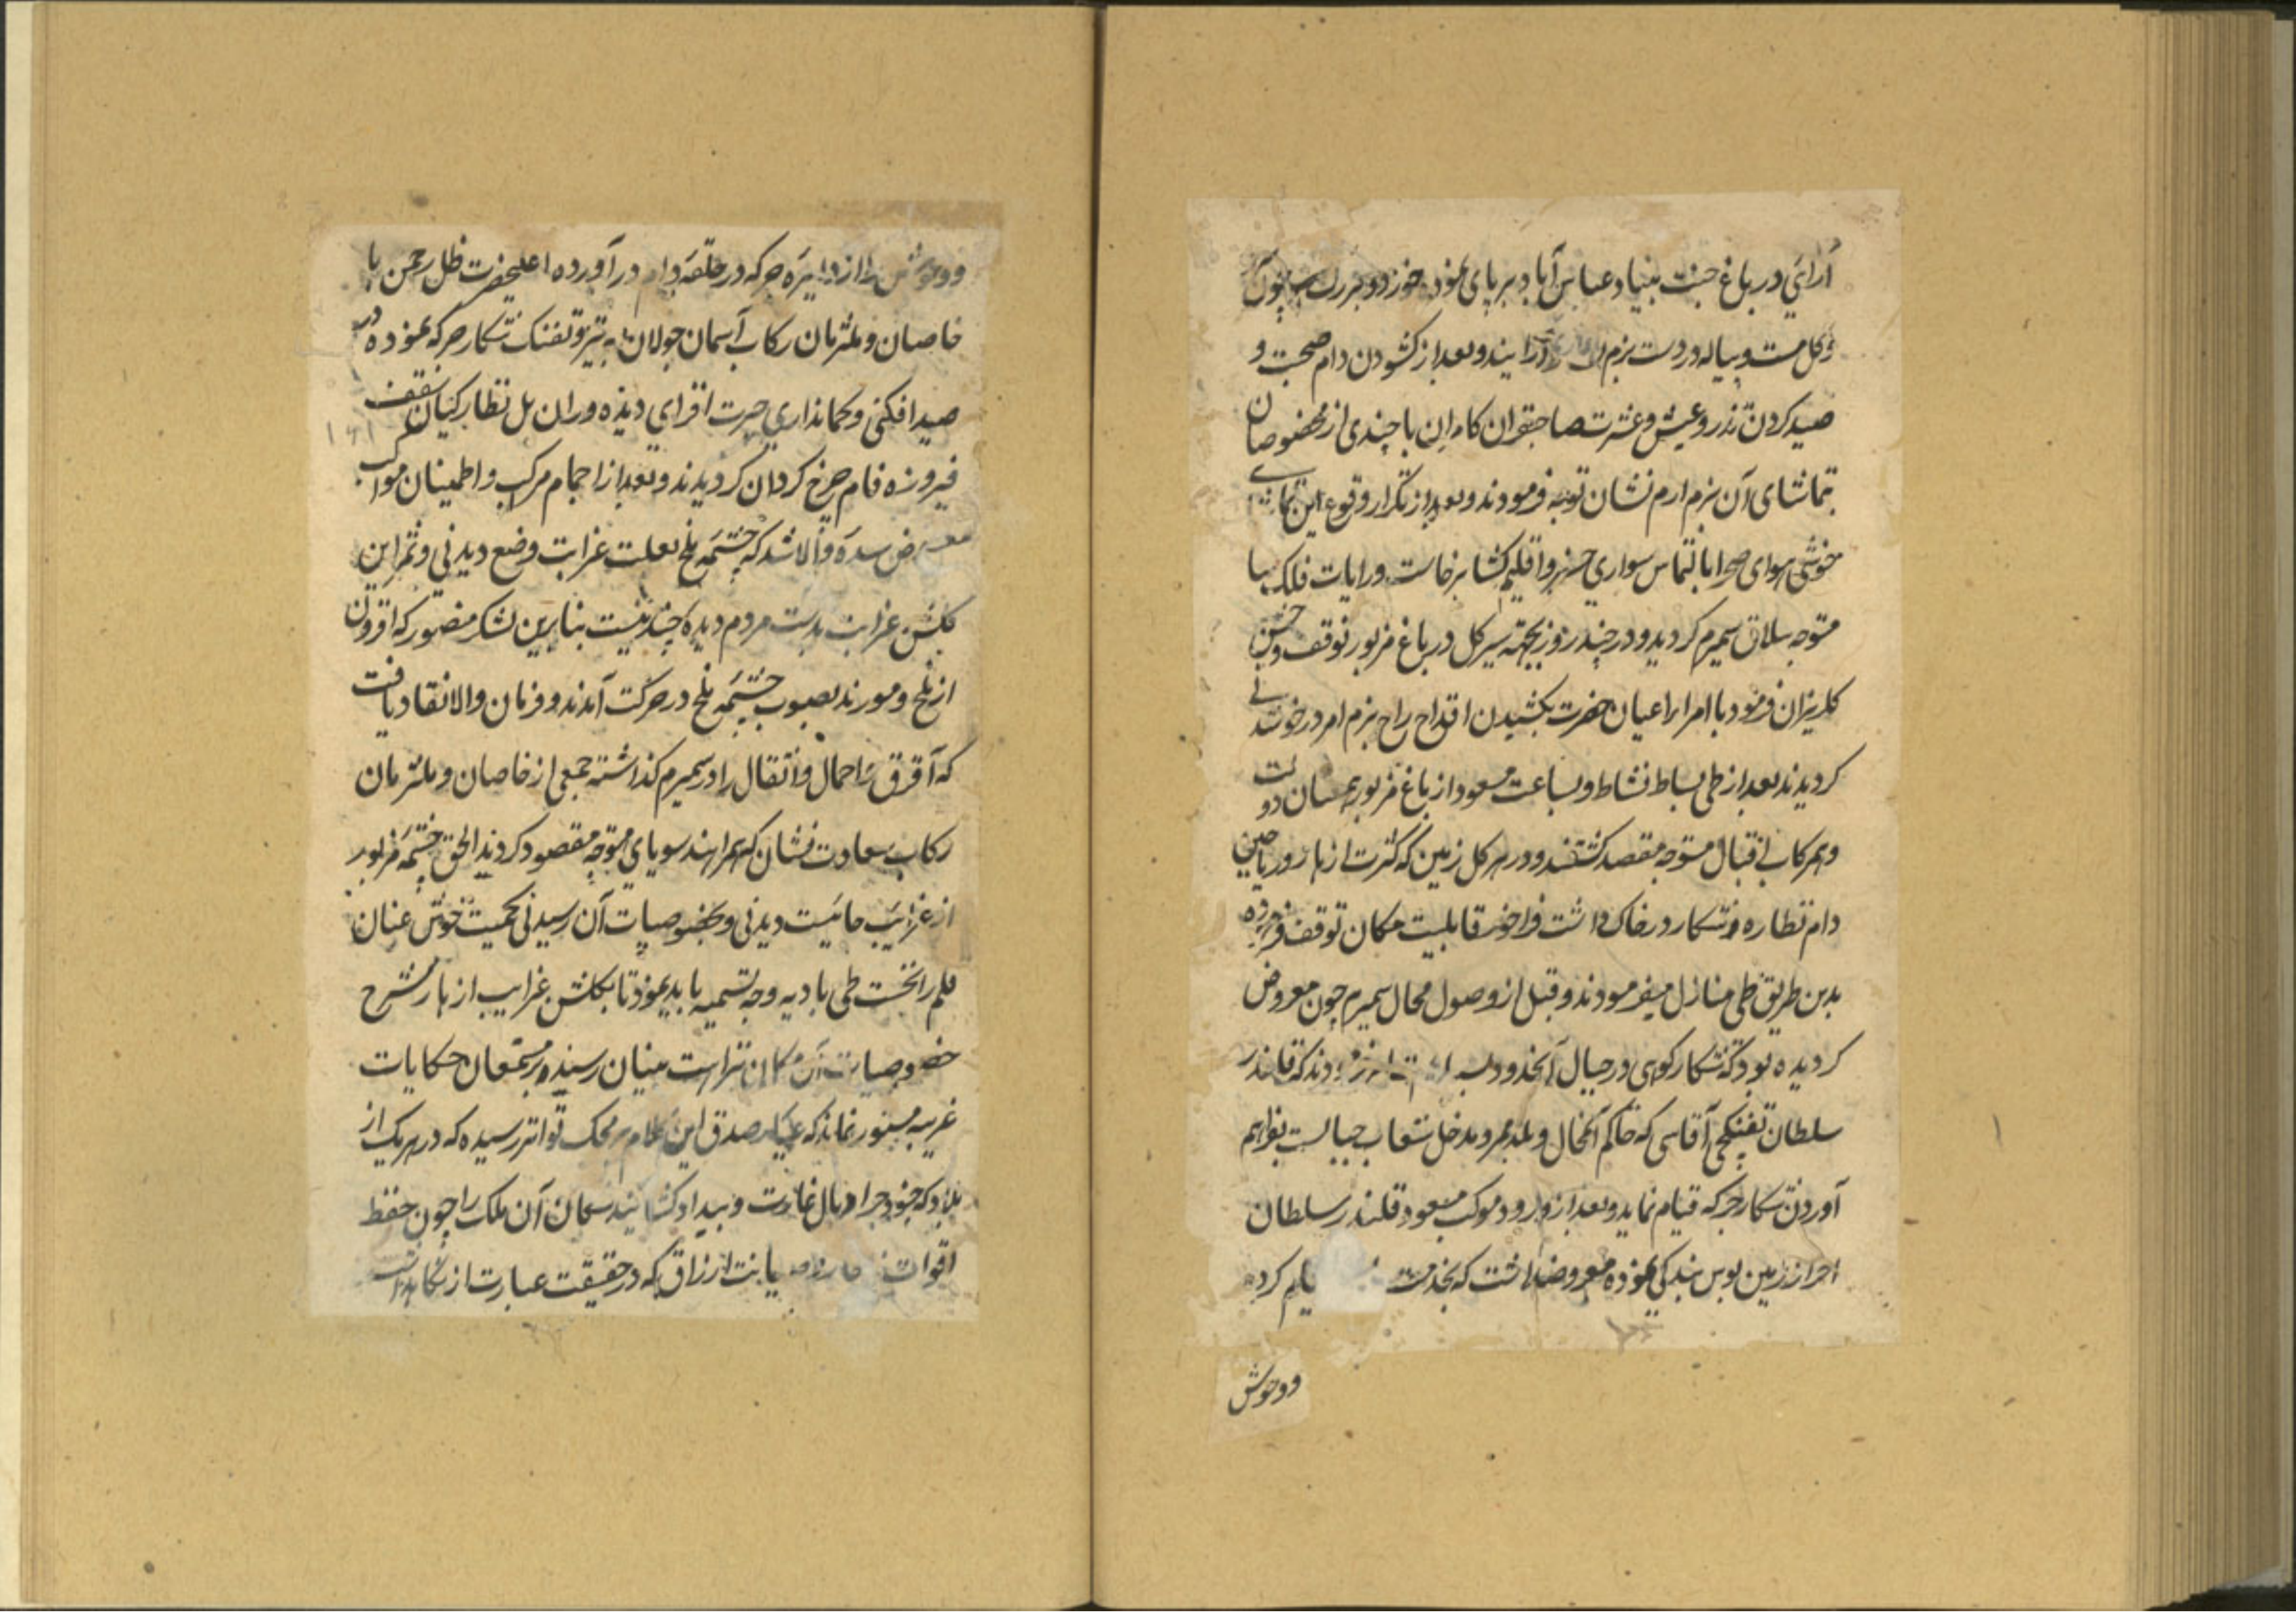 آرایي در باغ جنت بنیاد عباس آباد بر پای نمود خورد و بزرك چون
کل مست و پیاله در دست بزم آرایند و بعد از کشودن دام صحبت و
صید کردن تذرو عیش و عشرت صاحبقران کامران با چندی از مخصوصان
بتماشای آن بزم ارم نشان توجه فرمودند و بعد از تکرار وقوع این
خوشی هوای صحرا بالتماس سواري خسرو اقلیم کشا برخاست و رایات فلک سا
متوجه ییلاق سمیرم کردید و در چند روز بجهة سیر کل در باغ مزبور توقف و جشن
کلریزان فرمود با امرا و اعیان حضرت بکشیدن اقداح راح بزم افروز خوشدلی
کردیدند بعد از طی بساط نشاط و بساعت مسعود از باغ مزبور بهمعنان دولت
و همرکاب اقبال متوجه مقصد کشتند و در هر کل زمین که کثرت ازهار و ریاحین
دام نظاره و شکار در خاک داشت فراخور قابلیت مکان توقف فرموده
بدین طریق طی منازل میفرمودند و قبل از وصول محال سمیرم چون معروض
کردیده بود که شکار کوهی در جبال آنحدود که قلندر
سلطان تفنکچی آقاسی که حاکم آنمحال و بلد ممر و مدخل شعاب جبالست بفراهم
آوردن شکار جرکه قیام نماید و بعد از ورود موکب مسعود قلندر سلطان
احراز زمین بوس بندکی نموده معروضداشت که بخدمت کرده
ووحوش
ووحوش را از دایرۀ جرکه در حلقۀ دام در آورده اعلیحضرت ظل رحمن با
خاصان و ملتزمان رکاب آسمان جولان به تیر و تفنک شکار جرکه نموده در
صید افکنی و کمانداري حیرت افزاي دیده وران بل نظارکیان سقف
فیروزه فام چرخ کردان کردیدند و بعد از اجمام مرکب و اطمینان مواکب
معروض سدۀ والا شد که چشمۀ بلخ بعلت غرابت وضع دیدني و ثمر این
کلشن غرابت بدست مردم دیده چیدنیست بنابرین لشکر منصور که افزون
از ملخ و مورند بصوب چشمۀ بلخ در حرکت آمدند و فرمان والا نفاذ یافت
که آغرق و احمال و اثقال را در سمیرم کذاشته جمعی از خاصان و ملتزمان
رکاب سعادت نشان که همراهند سوباي متوجه مقصود کردید الحق چشمۀ مزبور
از غرایب جائیست دیدنی و بخصوصیات آن رسیدنی کمیت خوش عنان
قلم را نخست طی بادیه وجه تسمیه باید نمود تا بکلشن غرایب ازهار شرح
خصوصیات آن مکان نزاهت بنیان رسید و بر مستمعان حکایات
غریبه مستور نماند که عیار صدق این کلام بر محک تواتر رسیده که در هر یک از
بلاد که جنود جراد بال غارت و بیداد کشایند سکان آن ملک را چون حفظ
اقوات یا بنت ارزاق که در حقیقت عبارت از نکاهداشت